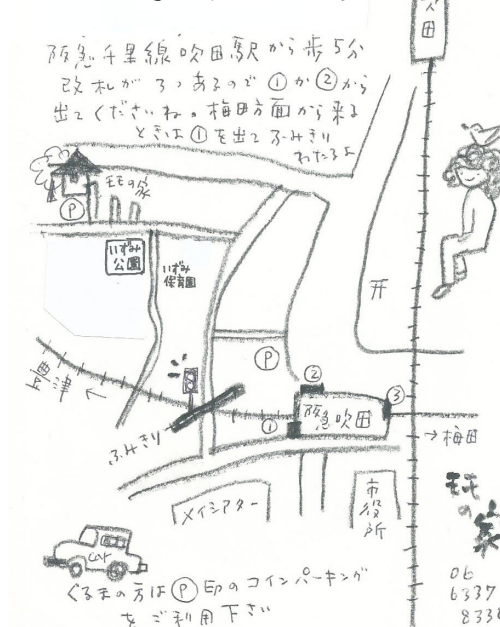 吹田
阪急千里線吹田駅から歩5分
改札が3つあるので①か②から
出てくださいね。梅田方面から来る
ときは①を出てふみきり
わたるよ
モモの家
P
いずみ
公園
いずみ
保育園
P
②
③
阪急吹田
①
豊津
←
ふみきり
→梅田
メイシアター
市役所
モモの家
06
6337
833
car
くるまの方はP印のコインパーキング
をご利用下さい